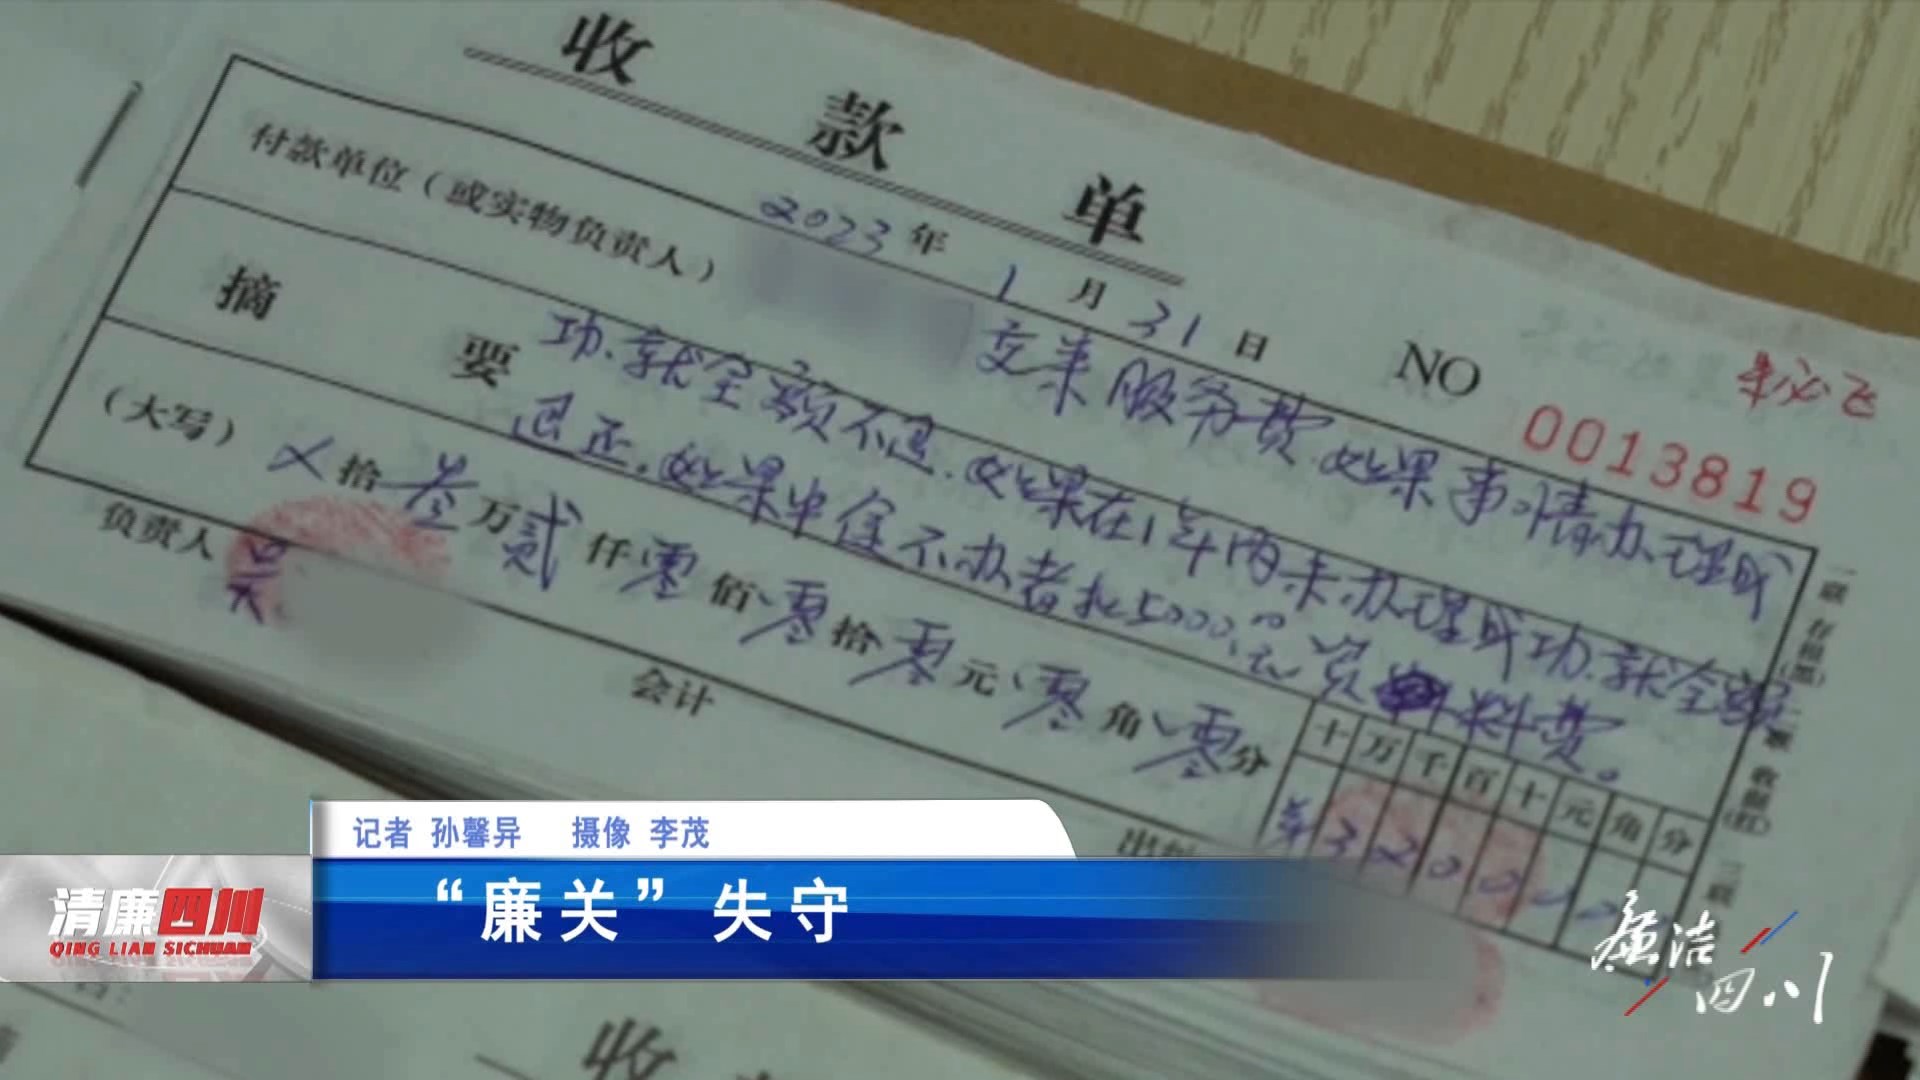 收款单
2023年1月31日
NO 0013819
付款单位（或实物负责人） 交来服务费.如果事情办理成
摘要 功.就全额不退.如果在1年内未办理成功.就全额
退还。如果中途不办者扣5000.00元资料费。
（大写） ㄨ拾叁万贰仟零佰零拾零元零角零分
十万千百十元角分
负责人 吴
会计
记者 孙馨异 摄像 李茂
“廉关”失守
清廉四川
QING LIAN SICHUAN
廉洁四川
收